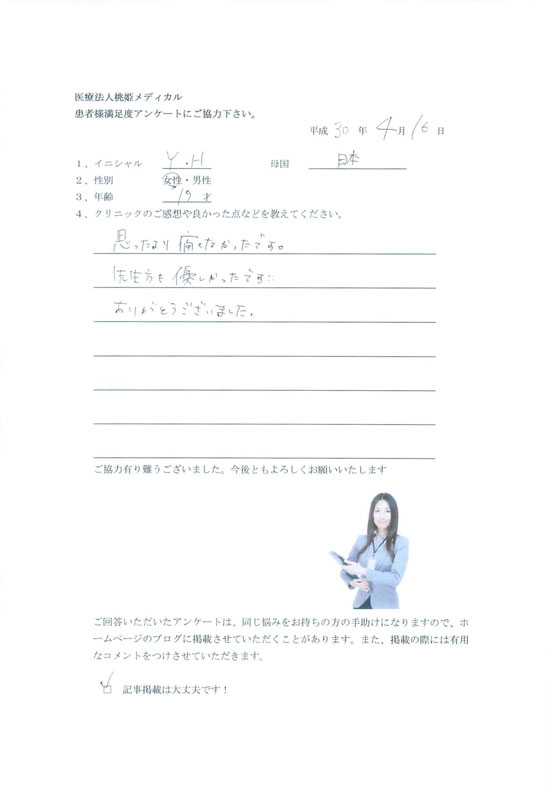 医療法人桃姫メディカル
患者様満足度アンケートにご協力下さい。
平成 30 年 4 月 16 日
1、イニシャル Y・H 母国 日本
2、性別 女性・男性
3、年齢 19 才
4、クリニックのご感想や良かった点などを教えてください。
思ったより痛くなかったです。
先生方も優しかったです!!
ありがとうございました。
ご協力有り難うございました。今後ともよろしくお願いいたします
ご回答いただいたアンケートは、同じ悩みをお持ちの方の手助けになりますので、ホ
ームページのブログに掲載させていただくことがあります。また、掲載の際には有用
なコメントをつけさせていただきます。
記事掲載は大丈夫です！